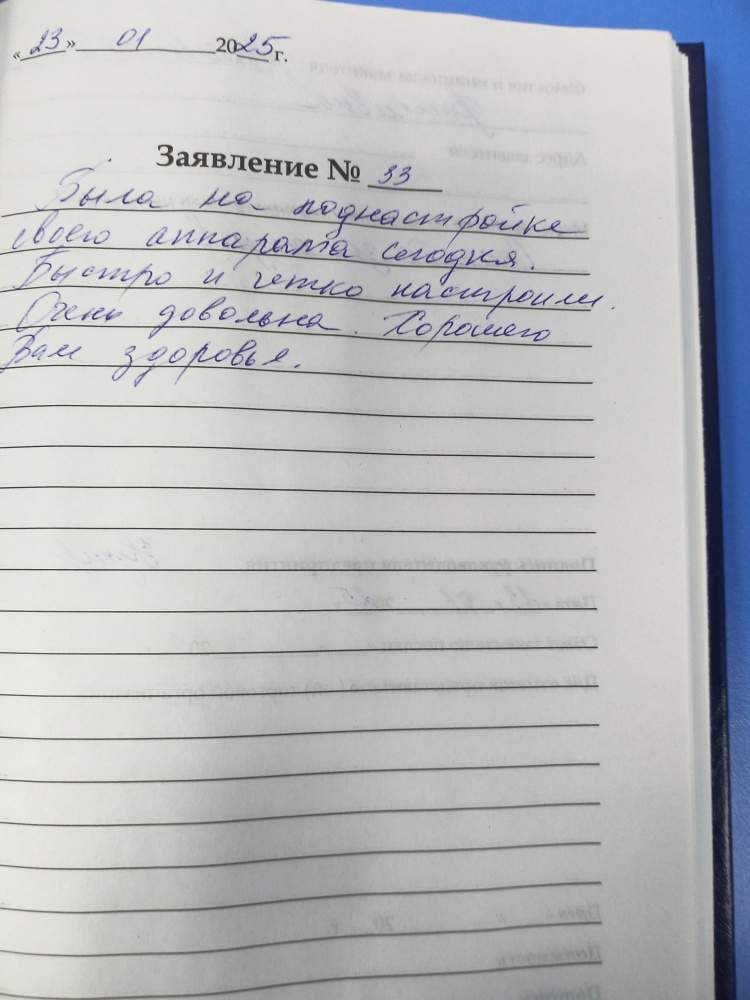 «23» 01 2025 г.
Заявление № 33
Была на поднастройке
своего аппарата сегодня.
Быстро и четко настроили.
Очень довольна. Хорошего
Вам здоровья.